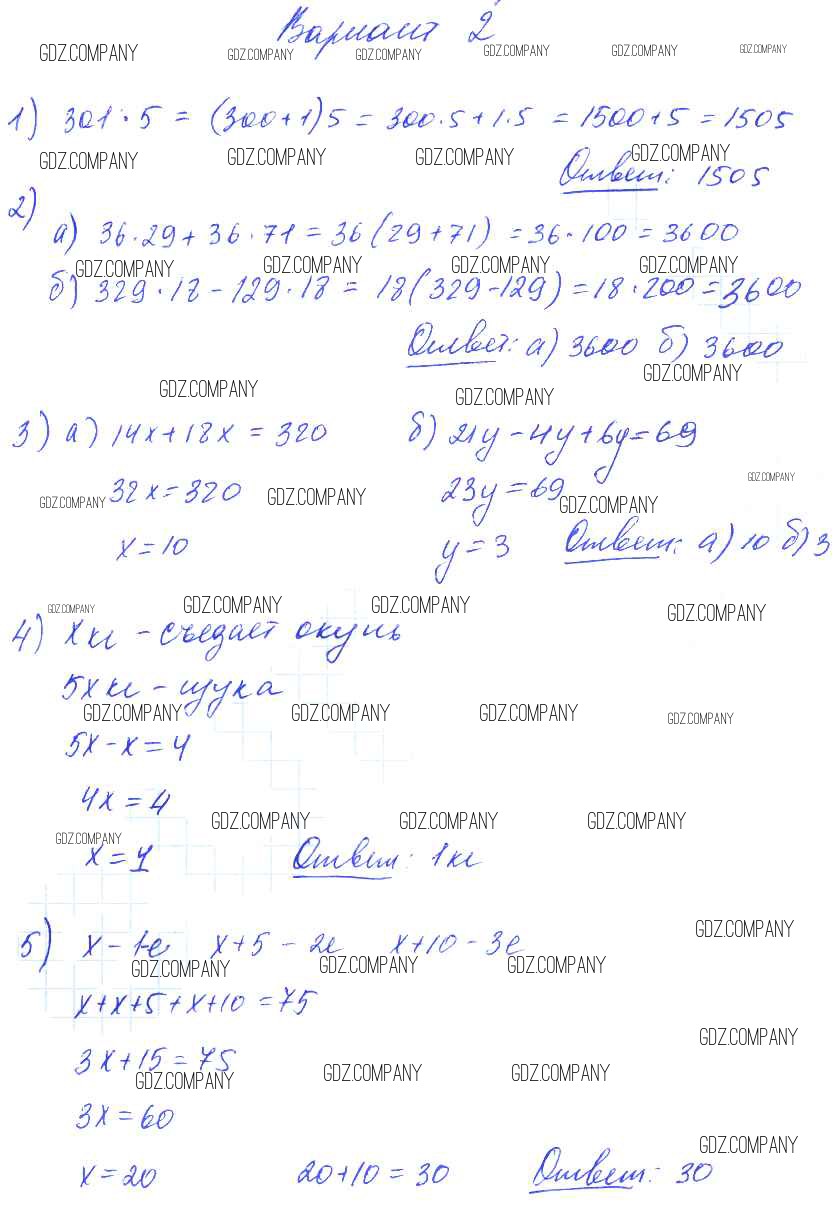 Вариант 2
GDZ.COMPANY GDZ.COMPANY GDZ.COMPANY GDZ.COMPANY GDZ.COMPANY GDZ.COMPANY
1) 301·5 = (300+1)5 = 300·5+1·5 = 1500+5 = 1505
GDZ.COMPANY GDZ.COMPANY GDZ.COMPANY GDZ.COMPANY
Ответ: 1505
2)
а) 36·29+36·71=36(29+71) =36·100=3600
GDZ.COMPANY GDZ.COMPANY GDZ.COMPANY GDZ.COMPANY
б) 329·18-129·18= 18(329-129)=18·200=3600
Ответ: а) 3600 б) 3600
GDZ.COMPANY GDZ.COMPANY GDZ.COMPANY
3) а) 14x+18x=320 б) 21y-4y+6y=69
GDZ.COMPANY
32x=320 23y=69
GDZ.COMPANY GDZ.COMPANY GDZ.COMPANY
x=10 y=3 Ответ: а) 10 б) 3
GDZ.COMPANY GDZ.COMPANY GDZ.COMPANY GDZ.COMPANY
4) x кг - съедает окунь
5x кг - щука
GDZ.COMPANY GDZ.COMPANY GDZ.COMPANY GDZ.COMPANY
5x-x=4
4x=4
GDZ.COMPANY GDZ.COMPANY GDZ.COMPANY
GDZ.COMPANY
x=1 Ответ: 1кг
GDZ.COMPANY
5) x-1е x+5-2е x+10-3е
GDZ.COMPANY GDZ.COMPANY GDZ.COMPANY
x+x+5+x+10=75
GDZ.COMPANY
3x+15=75
GDZ.COMPANY GDZ.COMPANY GDZ.COMPANY
3x=60
GDZ.COMPANY
x=20 20+10=30 Ответ: 30